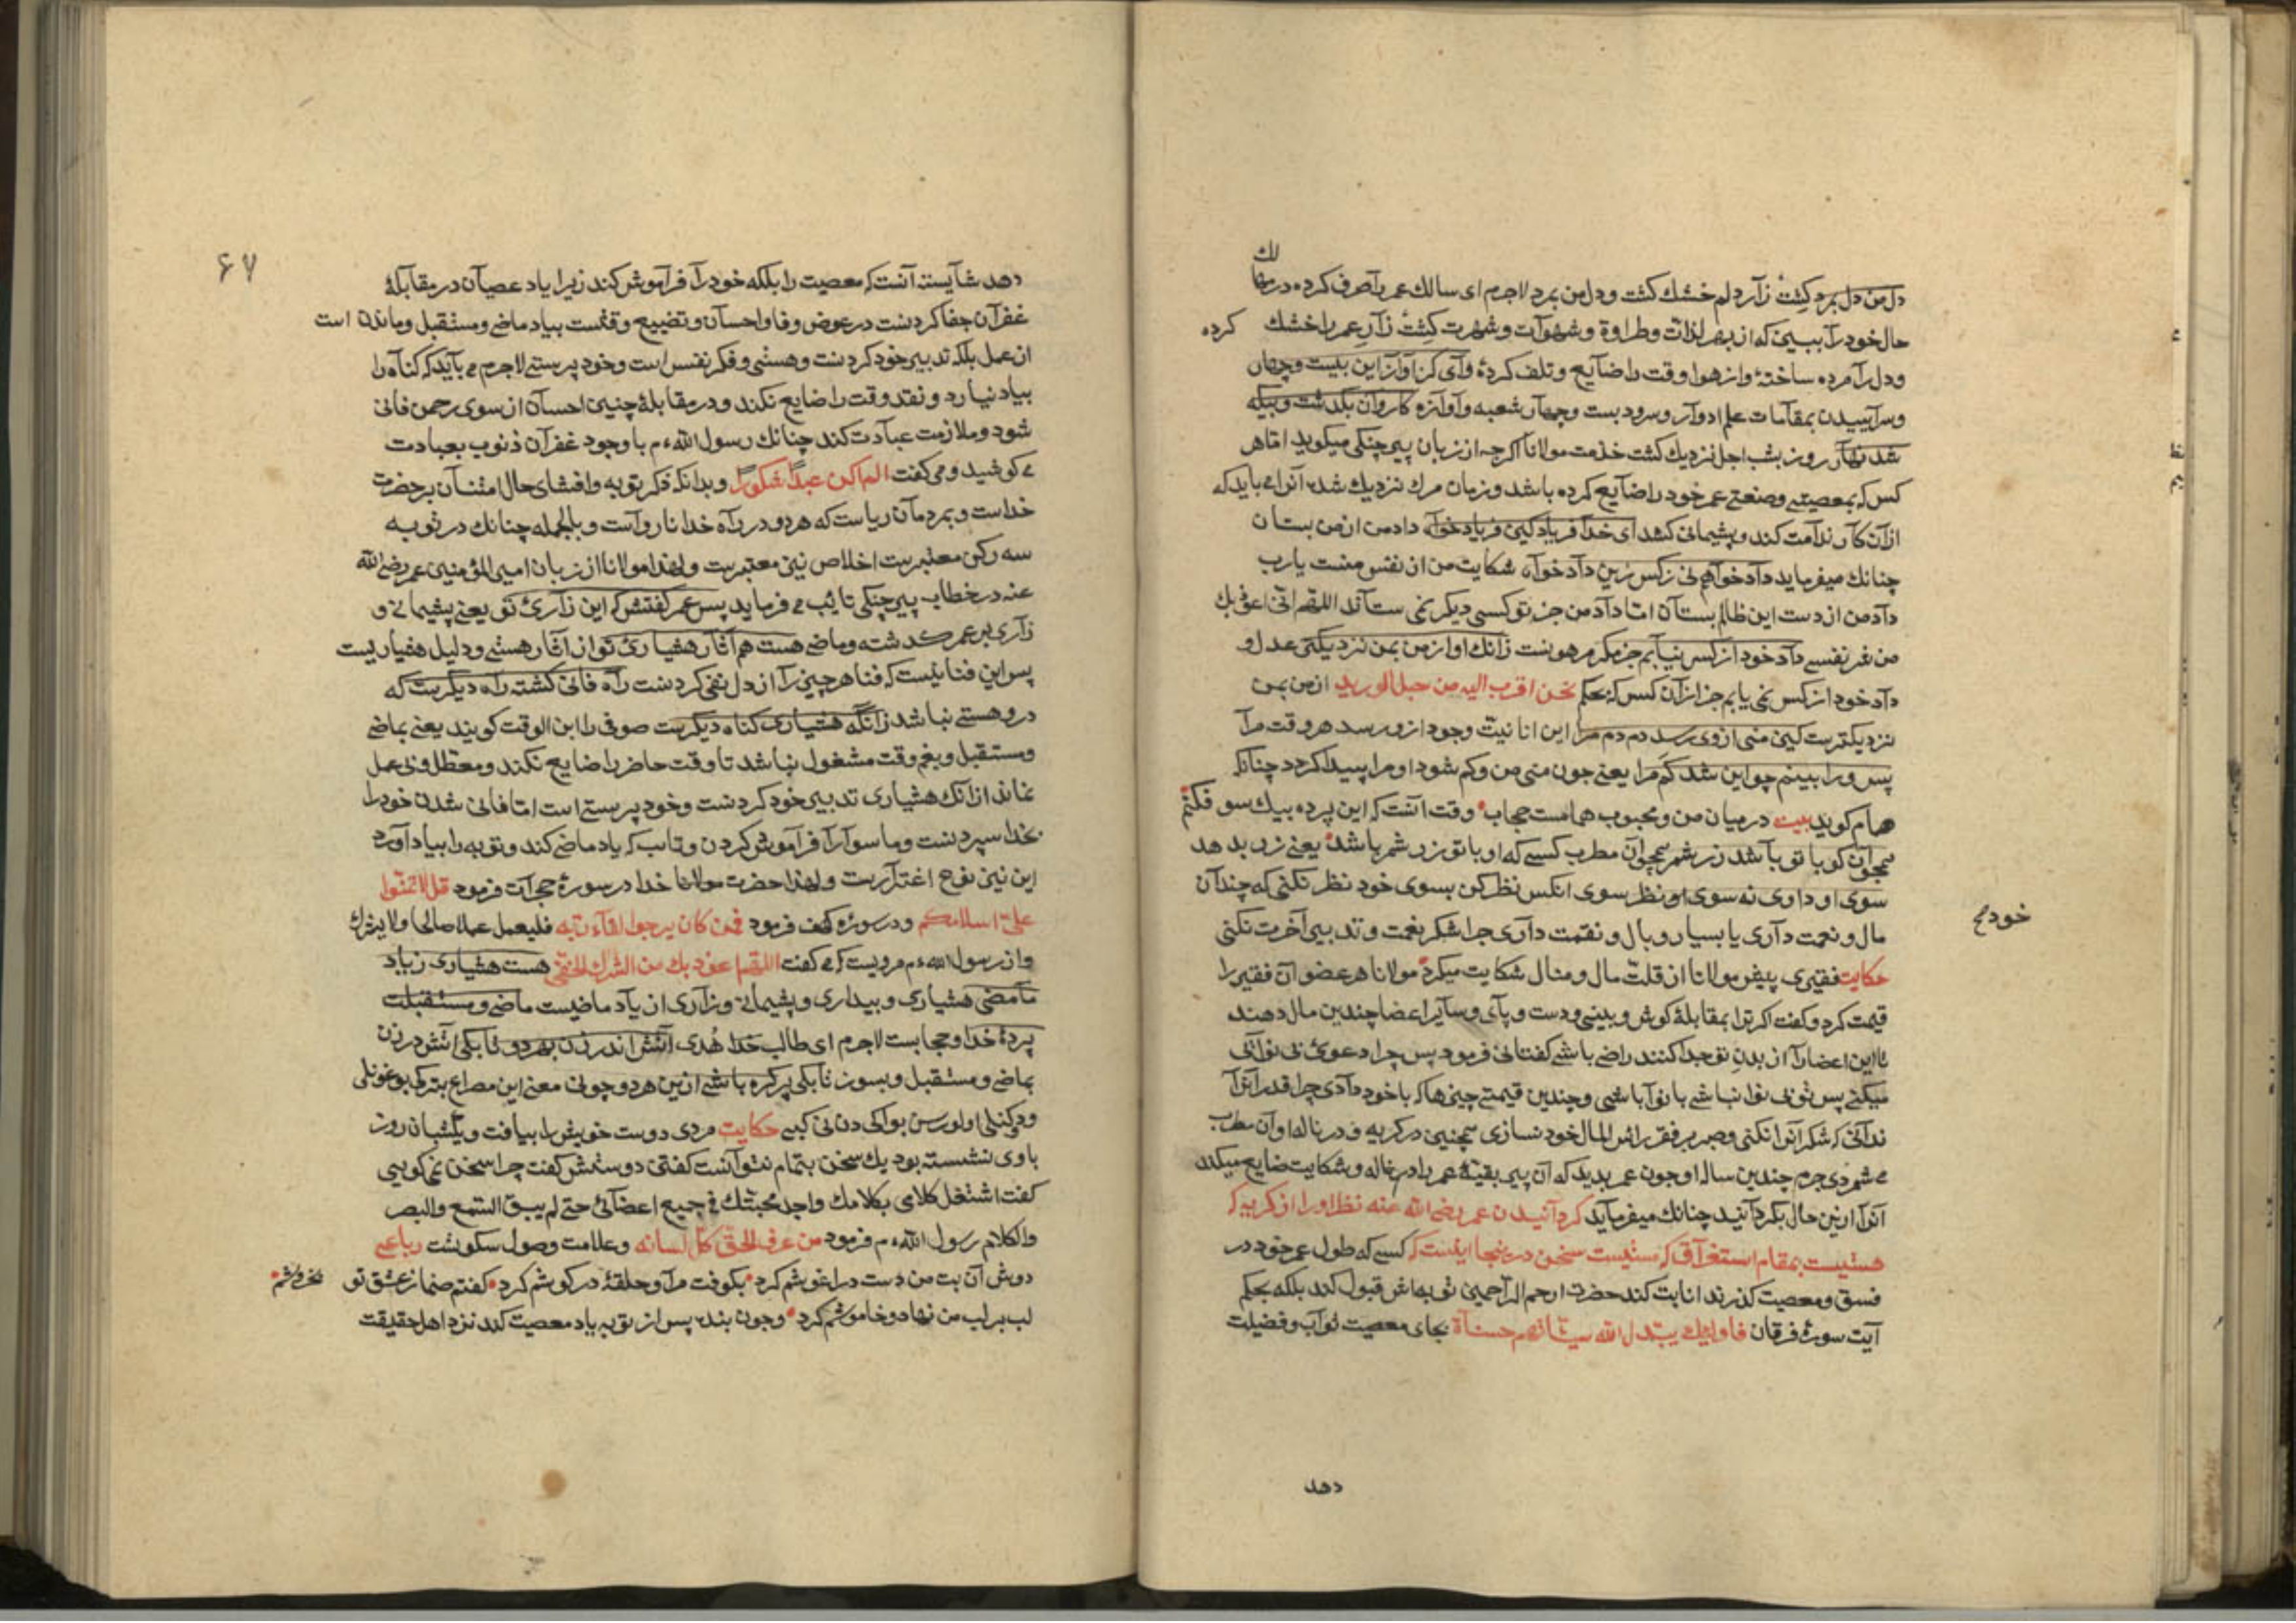 لك
دل من دل بمرد کشت زار دلم خشك کشت و دل من بمرد لاجرم ای سالك عمر را صرف کرده در مها
حال خود را ببینی که از بهر لذات و طراوة و شهوات و شهرت کشت زار عمر را خشك کرده
و دل را مرده ساختهٔ و از هوا وقت را ضایع و تلف کردهٔ وای کز آواز این بیست و چهار
و سراییدن بمقامات علم ادوار و سرود بست و چهار شعبه و آوازه کاروان بگذشت و بیگه
شد نهار روز بشب اجل نزدیك کشت خدمت مولانا اکرچه از زبان پیر چنکی میکوید اما هر
کس که بمعصیتی و صنعتی عمر خود را ضایع کرده باشد و زمان مرك نزدیك شده آنرا می باید که
از آن کار ندامت کند و پشیمانی کشد ای خدا فریاد کین فریاد خواه داد من از من بستان
چنانك میفرماید داد خواهم نی ز کس زین داد خواه شکایت من از نفس منست یا رب
داد من از دست این ظالم بستان اما داد من جز تو کسی دیکر نمی ستاند اللهم انی اعوذ بك
من شر نفسی داد خود از کس نیابم جز مکر مر هونست زانك او از من بمن نزدیکتر عدل و
داد خود از کس نمی یابم جز از آن کس که بحکم نحن اقرب الیه من حبل الورید از من بمن
نزدیکترست کین منی از وی رسد دم دم مرا این انانیت و وجود ازو رسد هر وقت مرا
پس ورا بینم چو این شد کم مرا یعنی چون منی من و کم شود او مرا پیدا کردد چنانکه
همام کوید بیت در میان من و محبوب همامست حجاب وقت آنست که این پرده بیك سو فکنم
همچو آن کو با تو باشد زر شمر همچو آن مطرب کسی که او با تو زر شمر باشد یعنی زر بدهد
سوی او داوی نه سوی او نظر سوی آنکس نظر کن بسوی خود نظر نکنی که چندان
مال و نعمت داری یا بسیار وبال و نقمت داری چرا شکر نعمت و تدبیر آخرت نکنی
خود م
حکایت فقیری پیش مولانا از قلت مال و منال شکایت میکرد مولانا هر عضو آن فقیر را
قیمت کرد و کفت اکر ترا بمقابلهٔ کوش و بینی و دست و پای و سایر اعضا چندین مال دهند
تا این اعضا را از بدن تو جدا کنند راضی باشی کفتا نی فرمود پس چرا دعوئ بی نوائی
میکنی پس تو بی نوا نباشی با نوا باشی و چندین قیمتی چیزها که با خود داری چرا قدر آنرا
ندانی که شکر آنرا نکنی و صبر بر فقر رأس المال خود نسازی همچنین در کریه و در ناله او آن مطرب
می شمردی جرم چندین ساله او چون عمر بدید که آن پیر بقیهٔ عمر را در ناله و شکایت ضایع میکند
آنرا ازین حال بکردانید چنانك میفرماید کردانیدن عمر رضی الله عنه نظر او را از کریه که
هستیست بمقام استغراق که نیستیست سخن در ینجا اینست که کسی که طول عمر خود در
فسق و معصیت کذراند انابت کند حضرت ارحم الراحمین توبه اش قبول کند بلکه بحکم
آیت سورهٔ فرقان فاولئك یبدل الله سیئاتهم حسناة بجای معصیت ثواب و فضیلت
دهد
۶۷
دهد شایسته آنست که معصیت را بلکه خود را فراموش کند زیرا یاد عصیان در مقابلهٔ
غفران جفا کردنست در عوض وفا و احسان و تضییع وقتست بیاد ماضی و مستقبل و ماندن است
از عمل بلکه تدبیر خود کردنست و هستی و فکر نفس است و خود پرستی لاجرم می باید که کناه را
بیاد نیارد و نقد وقت را ضایع نکند و در مقابلهٔ چنین احسان از سوی رحمن فانی
شود و ملازمت عبادت کند چنانك رسول الله ءم با وجود غفران ذنوب بعبادت
می کوشید و می کفت الم اکن عبدا شکورا و بدانکه ذکر توبه و افشای حال امتنان بر حضرت
خداست و بمردمان ریاست که هر دو در راه خدا نارواست و بالجمله چنانك در توبه
سه رکن معتبرست اخلاص نیز معتبرست و لهذا مولانا از زبان امیر المؤمنین عمر رضی الله
عنه در خطاب پیر چنکی تایب می فرماید پس عمر کفتش که این زارئ تو یعنی پشیمانی و
زاری بر عمر کذشته و ماضی هست هم آثار هشیارئ تو از آثار هستی و دلیل هشیاریست
پس این فنا نیست که فنا هر چیز را از دل نفی کردنست راه فانی کشته راه دیکرست که
درو هستی نباشد زانکه هشیاری کناه دیکرست صوفی را ابن الوقت کویند یعنی بماضی
و مستقبل و بغم وقت مشغول نباشد تا وقت حاضر را ضایع نکند و معطل و بی عمل
نماند از آنك هشیاری تدبیر خود کردنست و خود پرستی است اما فانی شدن خود را
بخدا سپردنست و ما سوا را فراموش کردن و تایب که یاد ماضی کند و توبه را بیاد آورد
این نیز نوع اغترارست و لهذا حضرت مولانا خدا در سورهٔ حجرات فرمود قل لا تمنوا
علی اسلامکم و در سوره کهف فرمود فمن کان یرجوا لقاء ربه فلیعمل عملا صالحا ولا یشرك
و از رسول الله ءم مرویست که می کفت اللهم اعوذ بك من الشرك الخفی هست هشیاری ز یاد
ما مضی هشیاری و بیداری و پشیمانی و زاری از یاد ماضیست ماضی و مستقبلت
پردهٔ خدا و حجابست لاجرم ای طالب خدا هدی آتش اندر زن بهر دو تا بکی آتش در زن
بماضی و مستقبل و بسوز تا بکی پر کره باشی ازین هر دو چونی معنی این مصراع بترکی بوغونلی
حکایت مردی دوست خویش را بیافت و یکشبان روز
با وی نشسته بود یك سخن بتمام نتوانست کفتی دوستش کفت چرا سخن نمی کویی
کفت اشتغل کلامی بکلامك واجد محبتك فی جمیع اعضائی حتی لم یبق السمع والبصر
والکلام رسول الله ءم فرمود من عرف الحق کل لسانه و علامت وصول سکونست رباعی
دوش آن بت من دست در اغوشم کرد بکوفت مرا و حلقهٔ در کوشم کرد کفتم صنما ز عشق تو بخروشم
لب بر لب من نهاد و خاموشم کرد و چون بنده پس از توبه یاد معصیت کند نزد اهل حقیقت